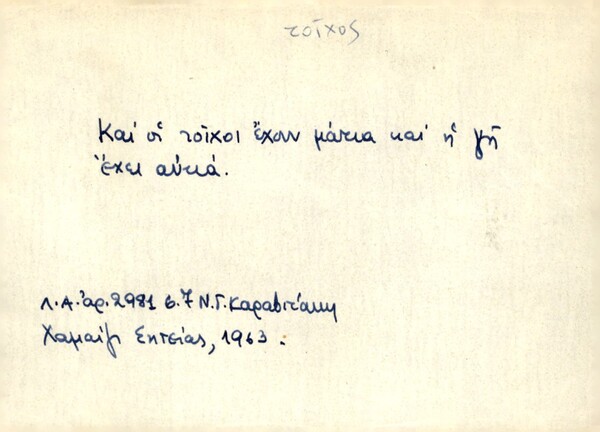 τοῖχος
Καί οἱ τοῖχοι ἔχουν μάτια καί ἡ γῆ
ἔχει αὐτιά.
Λ.Α. ἀρ. 2981 σ. 7 Ν.Γ. Καραβιτάκη
Χαμαίζι Σητείας, 1963.